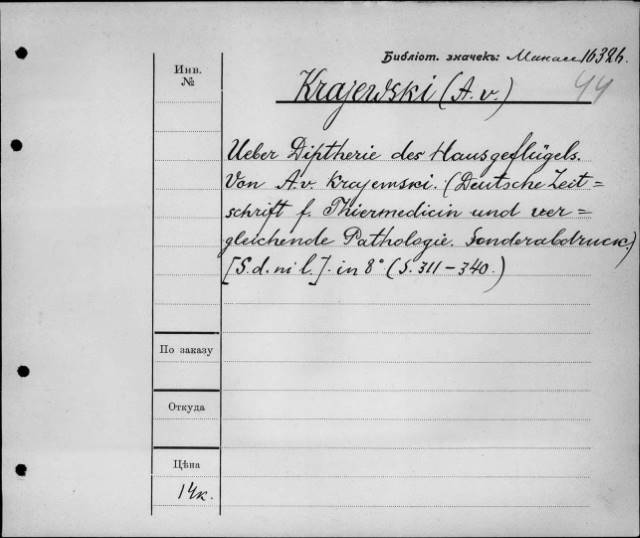 Библіот. значекъ: Манасс 16326.
Инв.
№
Krajewski (A. v.) 44
Ueber Diptherie des Hausgeflügels.
Von A. v. Krajewski. (Deutsche Zeit=
schrift f. Thiermedicin und ver=
gleichende Pathologie. Sonderabdruck.)
[S. d. ni l.]. in 8° (S. 311–340.)
По заказу
Откуда
Цѣна
14к.